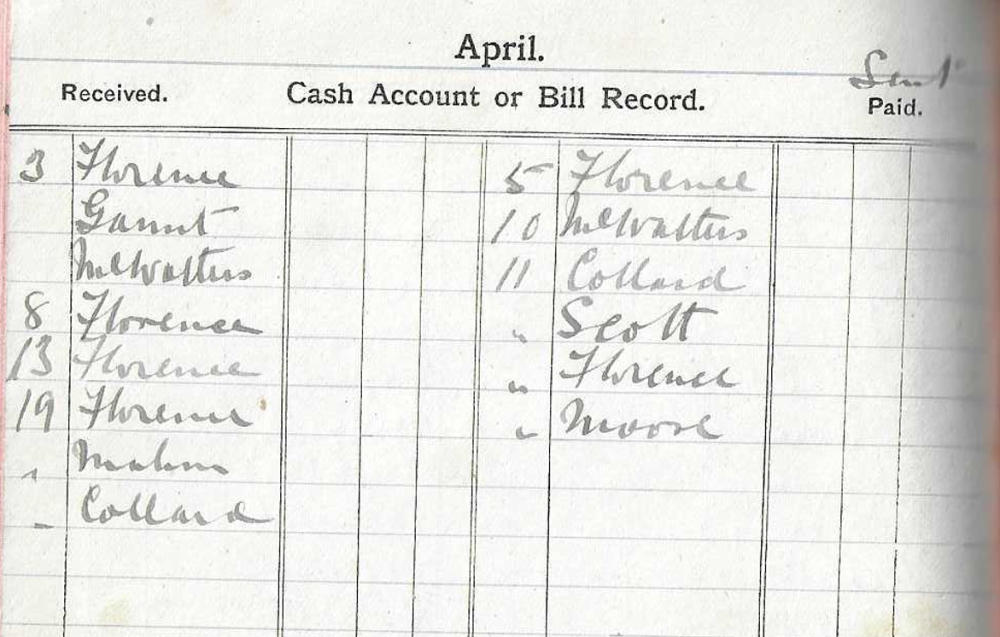 April.
Sent
Received. Cash Account or Bill Record. Paid.
3 Florence 5 Florence
Gamut 10 McWatters
McWatters 11 Collard
8 Florence " Scott
13 Florence " Florence
19 Florence " Moore
"
" Collard